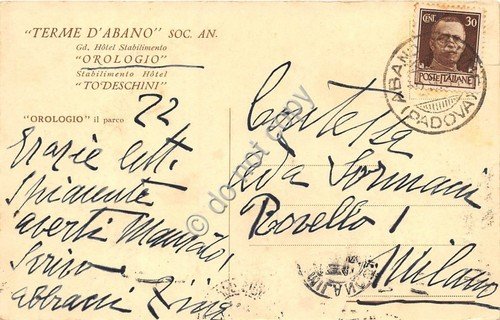 "TERME D'ABANO" SOC. AN.
Gd. Hôtel Stabilimento
"OROLOGIO"
Stabilimento Hôtel
"TODESCHINI"
"OROLOGIO" il parco
22
Grazie lett.
Spiacente
averti mancato!
Scrivo
abbracci
CENT. 30
POSTE ITALIANE
ABANO TERME
(PADOVA)
Contessa
Lida Sormani
Rovello 1
Milano
do not copy